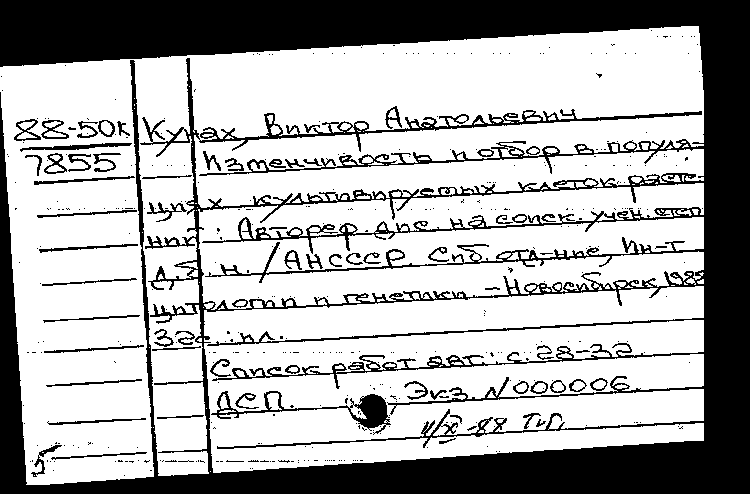 88-50к Кунах, Виктор Анатольевич
7855 Изменчивость и отбор в популя-
циях культивируемых клеток расте-
ний : Автореф. дис. на соиск. учен. степ
д. б. н. / АН СССР. Сиб. отд-ние, Ин-т
цитологии и генетики. - Новосибирск, 1988
32с. : ил.
Список работ авт.: с. 28-32.
ДСП. Экз. N 000006.
5